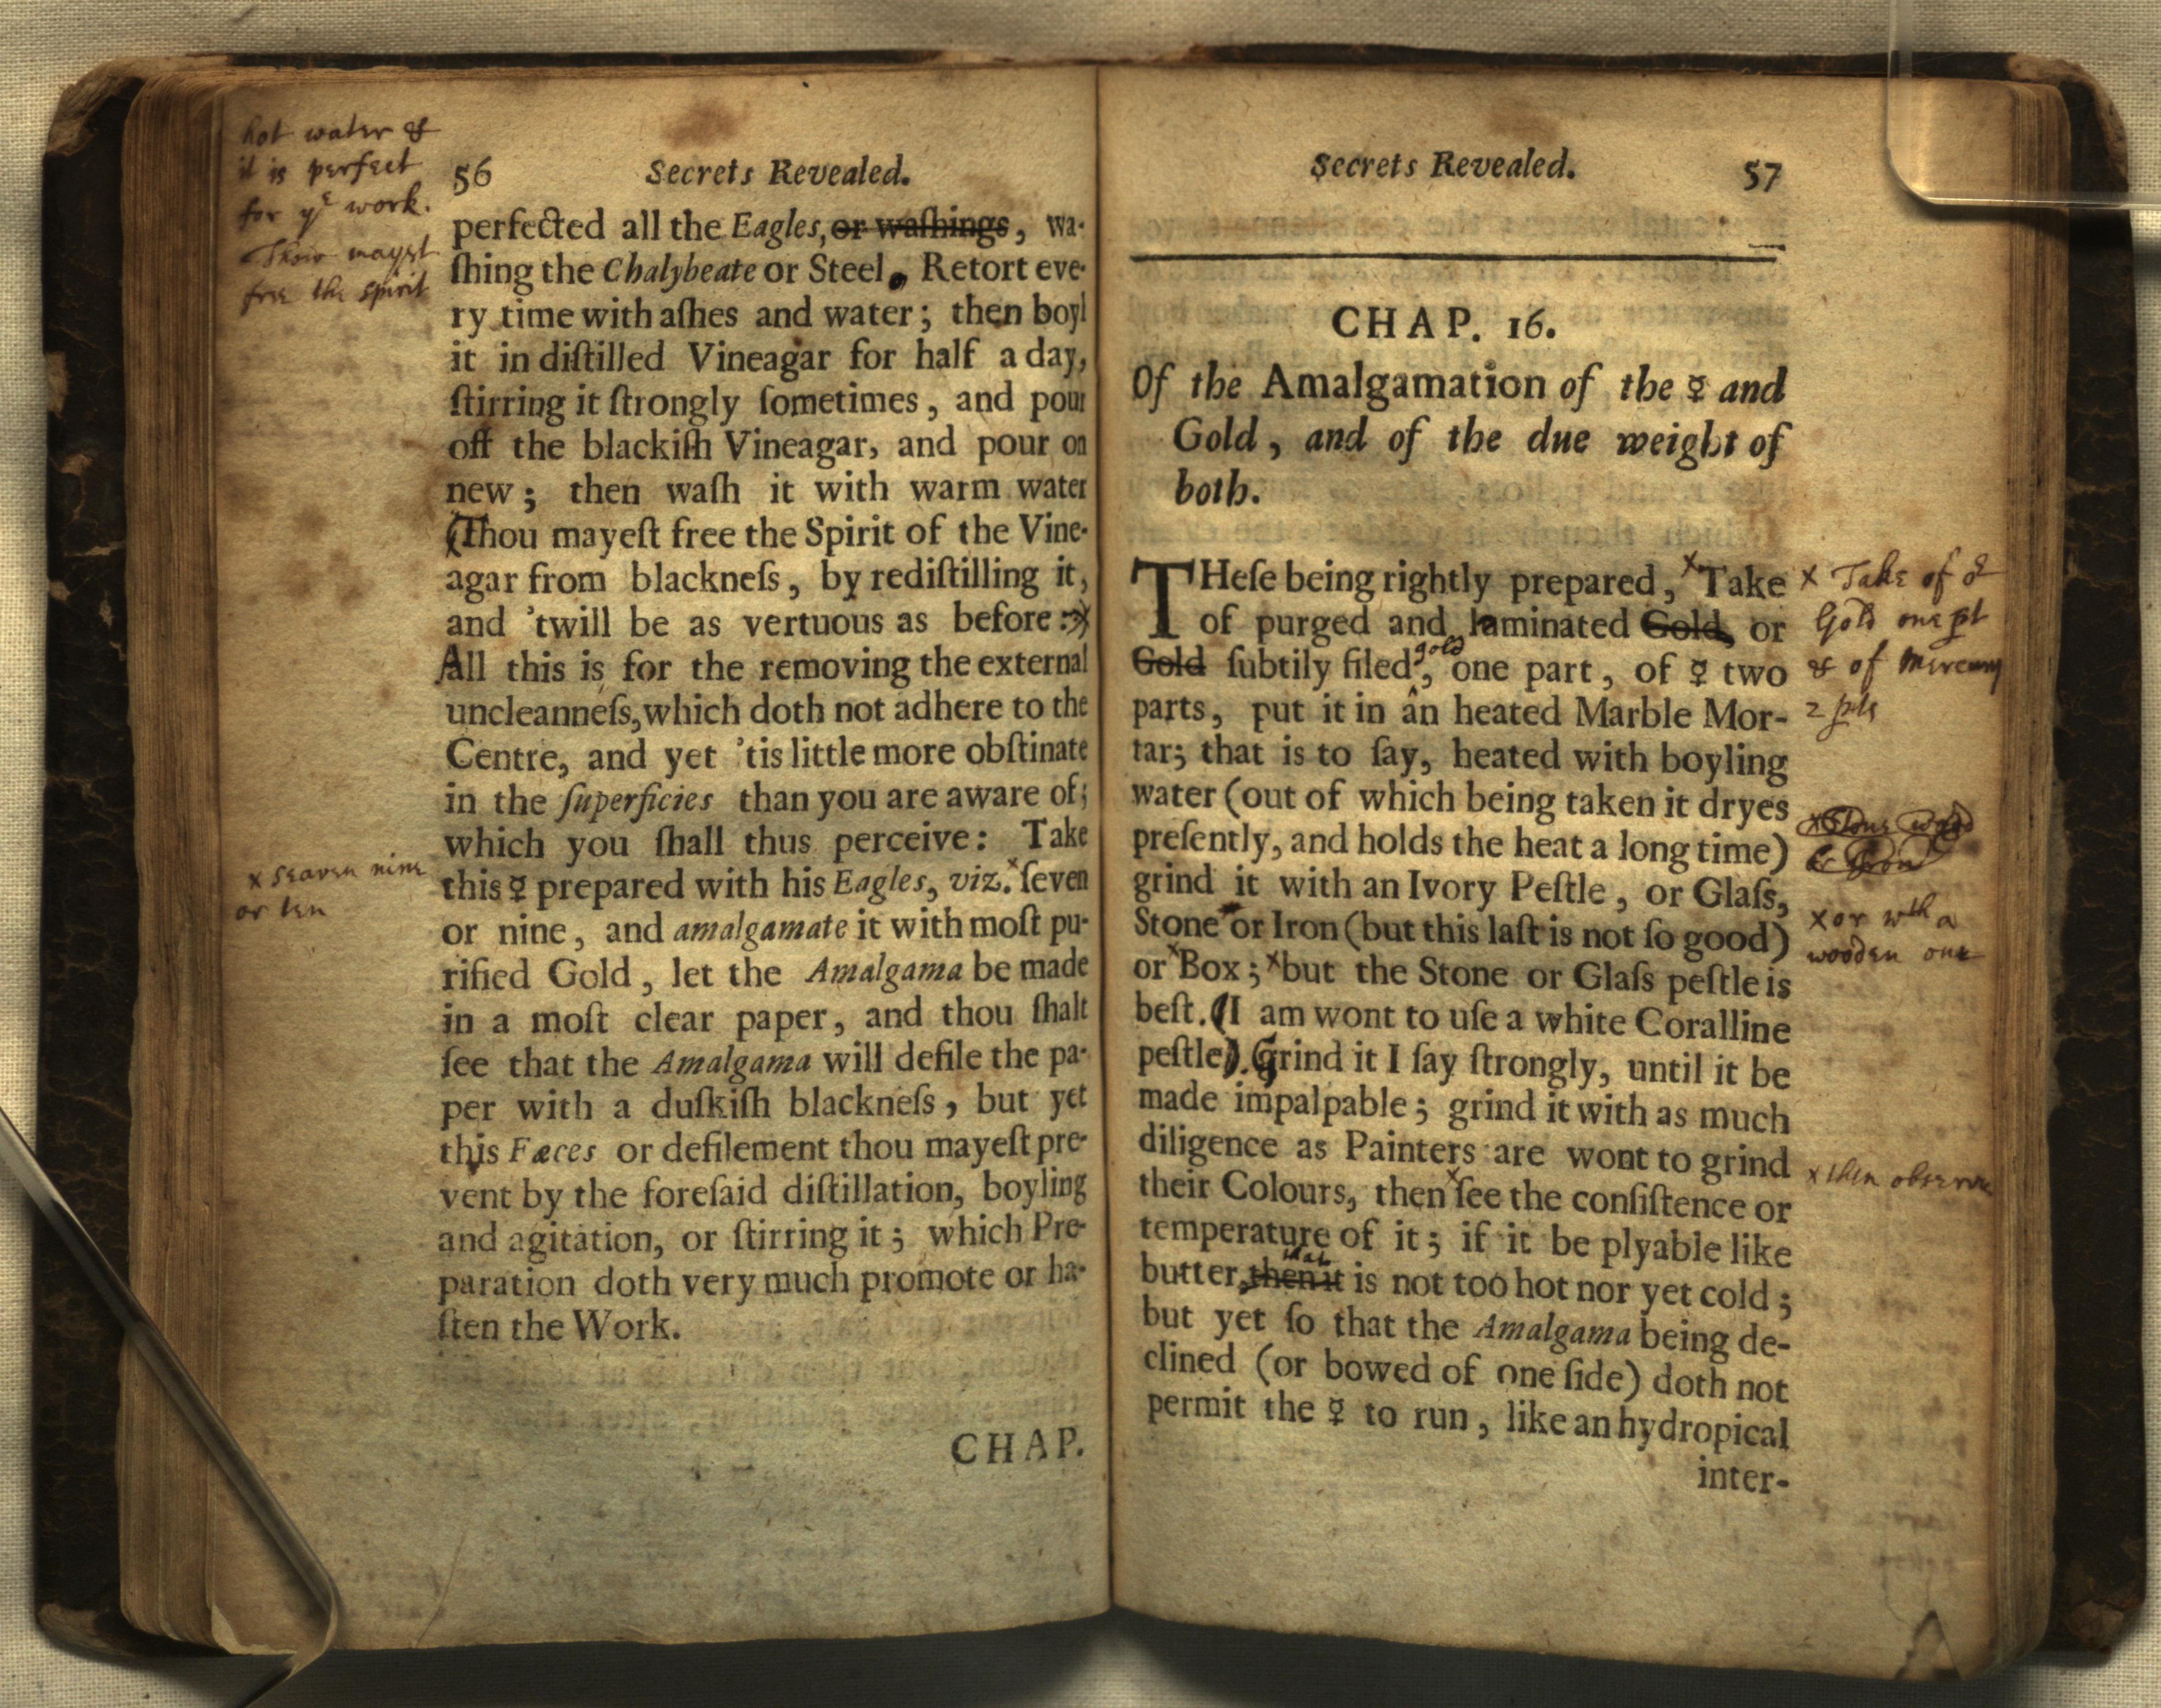 hot water &
it is perfect
for yͤ work.
Thou mayst
free the spirit
56 Secrets Revealed.
perfected all the Eagles, or waſhings, wa-
ſhing the Chalybeate or Steel. Retort eve-
ry time with aſhes and water; then boyl
it in diſtilled Vineagar for half a day,
ſtirring it ſtrongly ſometimes, and pour
off the blackiſh Vineagar, and pour on
new; then waſh it with warm water
(Thou mayeſt free the Spirit of the Vine-
agar from blackneſs, by rediſtilling it,
and 'twill be as vertuous as before:)
All this is for the removing the external
uncleanneſs, which doth not adhere to the
Centre, and yet 'tis little more obſtinate
in the ſuperficies than you are aware of;
which you ſhall thus perceive: Take
this ☿ prepared with his Eagles, viz. x ſeven
or nine, and amalgamate it with moſt pu-
rified Gold, let the Amalgama be made
in a moſt clear paper, and thou ſhalt
ſee that the Amalgama will defile the pa-
per with a duſkiſh blackneſs, but yet
this Fæces or defilement thou mayeſt pre-
vent by the foreſaid diſtillation, boyling
and agitation, or ſtirring it; which Pre-
paration doth very much promote or ha-
ſten the Work.
CHAP.
x seaven nine
or ten
Secrets Revealed. 57
CHAP. 16.
Of the Amalgamation of the ☿ and
Gold, and of the due weight of
both.
THeſe being rightly prepared, x Take
of purged and laminated Gold, or
Gold ſubtily filed, gold one part, of ☿ two
parts, put it in an heated Marble Mor-
tar; that is to ſay, heated with boyling
water (out of which being taken it dryes
preſently, and holds the heat a long time)
grind it with an Ivory Peſtle, or Glaſs,
Stone or Iron (but this laſt is not ſo good)
or x Box; x but the Stone or Glaſs peſtle is
beſt. (I am wont to uſe a white Coralline
peſtle). Grind it I ſay ſtrongly, until it be
made impalpable; grind it with as much
diligence as Painters are wont to grind
their Colours, then x ſee the conſiſtence or
temperature of it; if it be plyable like
butter, then it is not too hot nor yet cold;
but yet ſo that the Amalgama being de-
clined (or bowed of one ſide) doth not
permit the ☿ to run, like an hydropical
inter-
x Take of
Gold one pt
& of Mercury
2 pts
x or wth a
wooden one
x then observe